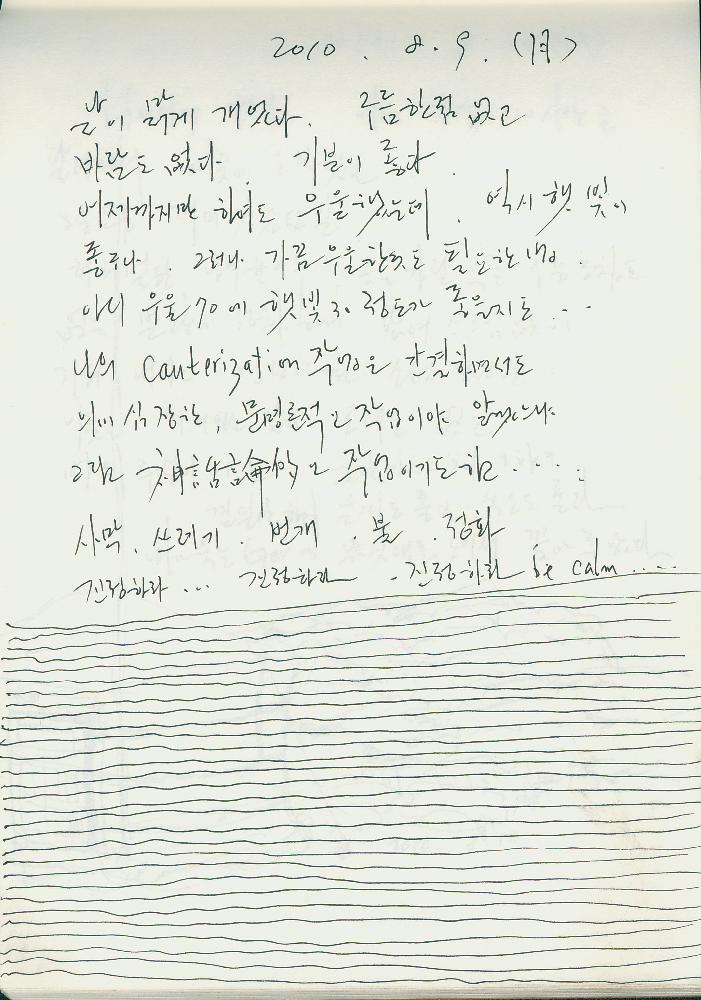 2010 . 8. 9. (月)
날이 맑게 개었다. 구름한점 없고
바람도 없다. 기분이 좋다.
어제까지만 하여도 우울했는데. 역시 햇빛이
좋구나. 그러나 가끔 우울한것도 필요한 법.
아니 우울 70에 햇빛 30 정도가 좋을지도...
나의 Cauterization 작업은 간결하면서도
의미심장한, 문명론적인 작업이야 알겠느냐
그리고 神話論的인 작업이기도 하고.....
사막. 쓰레기. 번개. 불. 정화
진정하라... 진정하라. 진정하라 be calm.....